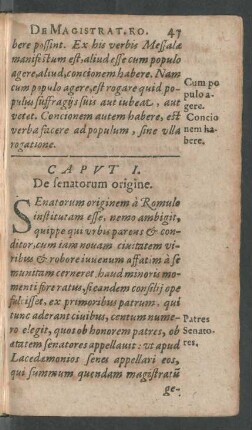 DE MAGISTRAT. RO. 47
bere possint. Ex his verbis Messalæ
manifestum est, aliud esse cum populo
agere, aliud, concionem habere. Nam
cum populo agere, est rogare quid po-
pulus suffragijs suis aut iubeat, aut
vetet. Concionem autem habere, est
verba facere ad populum, sine vlla
rogatione.
Cum po
pulo a-
gere.
Concio
nem ha-
bere.
CAPVT I.
De senatorum origine.
SEnatorum originem à Romulo
institutam esse, nemo ambigit,
quippe qui vrbis parens & con-
ditor, cum iam nouam ciuitatem vi-
ribus & robore iuuenum affatim à se
munitam cerneret haud minoris mo-
menti fore ratus, si eandem consilij ope
fulsisset, ex primoribus patrum, qui
tunc aderant ciuibus, centum nume-
ro elegit, quos ob honorem patres, ob
ætatem senatores appellauit: vt apud
Lacedæmonios senes appellari eos,
qui summum quendam magistratū
ge-
Patres
Senato-
res.